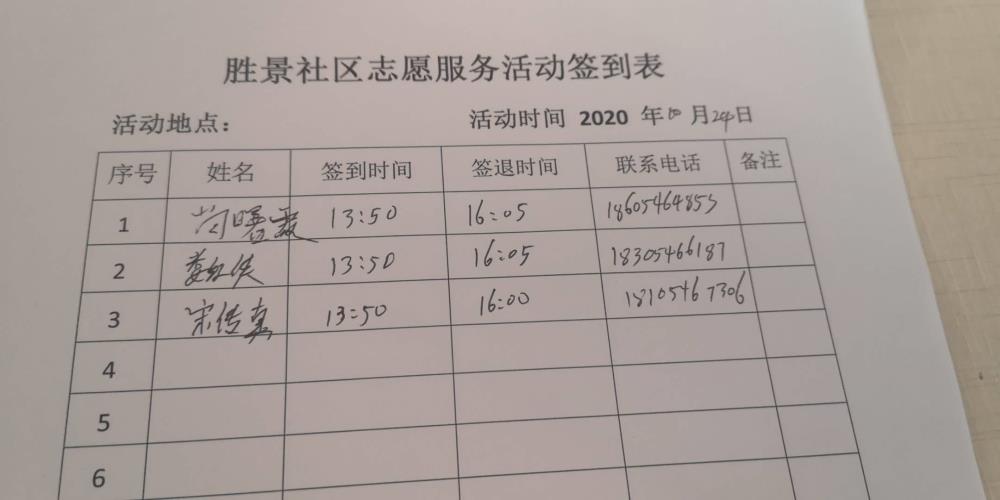 胜景社区志愿服务活动签到表
活动地点： 活动时间 2020 年 月24日
序号 姓名 签到时间 签退时间 联系电话 备注
1 曙霞 13:50 16:05 18605464853
2 13:50 16:05 18305466187
3 宋传真 13:50 16:00 18105467306
4
5
6